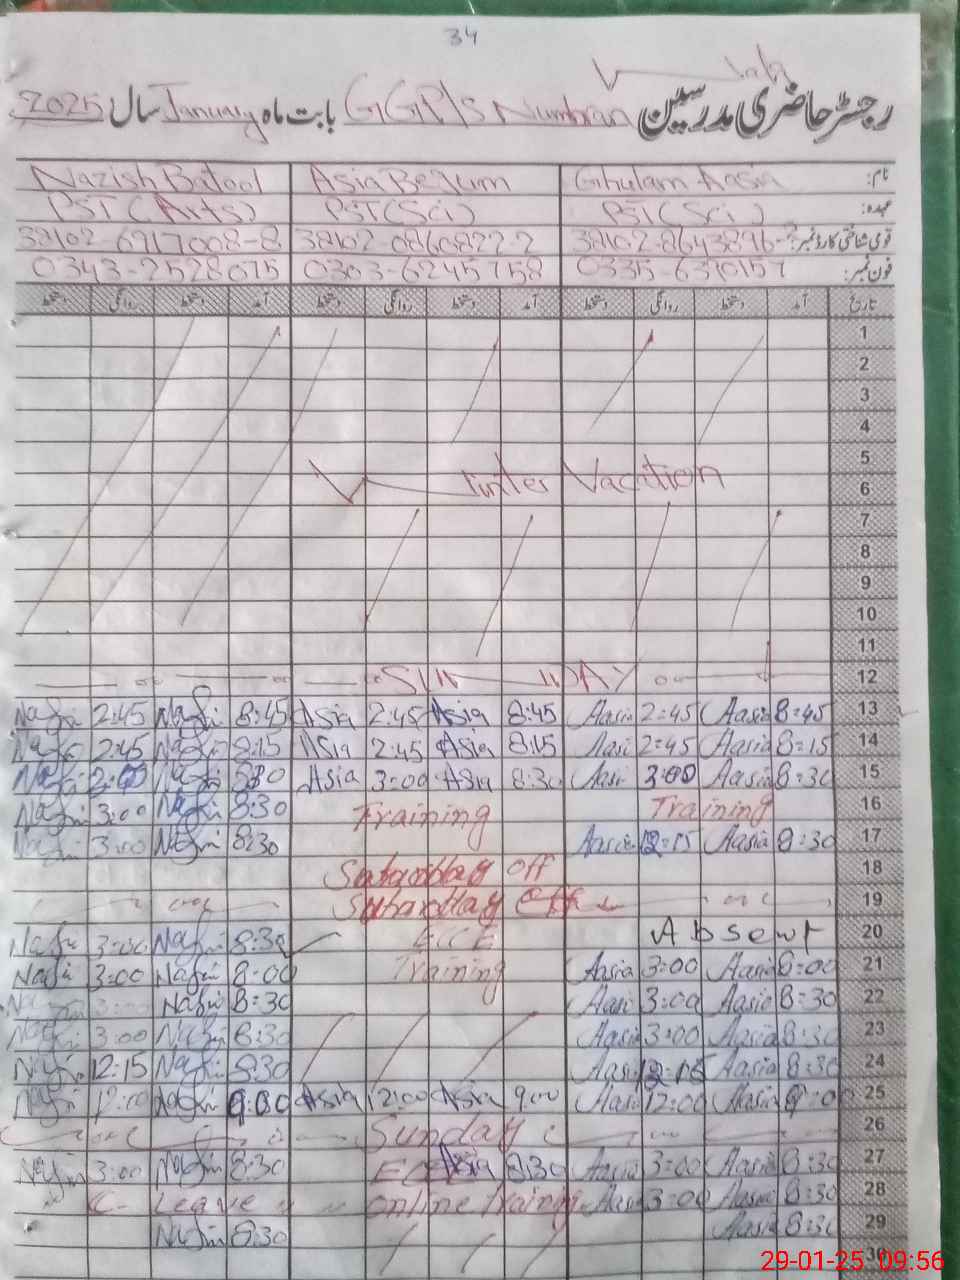 34
رجسٹر حاضری مدرسین GGP/S Numban بابت ماہ January سال 2025
نام: Ghulam Aasia Asia Begum Nazish Batool
عہدہ: PST (Sci) PST (Sci) PST (Arts)
قومی شناختی کارڈ نمبر: 38102-0860822-2 38102-6217008-8
فون نمبر: 0335-6370157 0303-6245758 0343-2528075
تاریخ آمد دستخط روانگی دستخط آمد دستخط روانگی دستخط آمد دستخط روانگی دستخط
1
2
3
4
5
Winter Vacation 6
7
8
9
10
11
SUNDAY 12
2:45 8:45 Asia 2:45 Asia 8:45 Aasia 2:45 Aasia 8:45 13
2:45 8:15 Asia 2:45 Asia 8:15 Aasi 2:45 Aasia 8:15 14
Asia 3:00 Asia 8:30 Aasi 3:00 Aasia 8:30 15
3:00 8:30 Training Training 16
3:00 8:30 Aasia 12:15 Aasia 8:30 17
Saturday off 18
19
3:00 8:30 ECCE Absent 20
3:00 8:00 Training Aasia 3:00 Aasia 8:00 21
8:30 Aasi 3:00 Aasia 8:30 22
3:00 8:30 Aasia 3:00 Aasia 8:30 23
12:15 8:30 Aasia 12:15 Aasia 8:30 24
12:00 9:00 Asia 12:00 Asia 9:00 Aasi 12:00 Aasia 9:00 25
Sunday 26
3:00 8:30 Asia 8:30 Aasia 3:00 Aasia 8:30 27
C- Leave online training Aasia 3:00 Aasia 8:30 28
8:30 Aasia 8:30 29
30
29-01-25 09:56